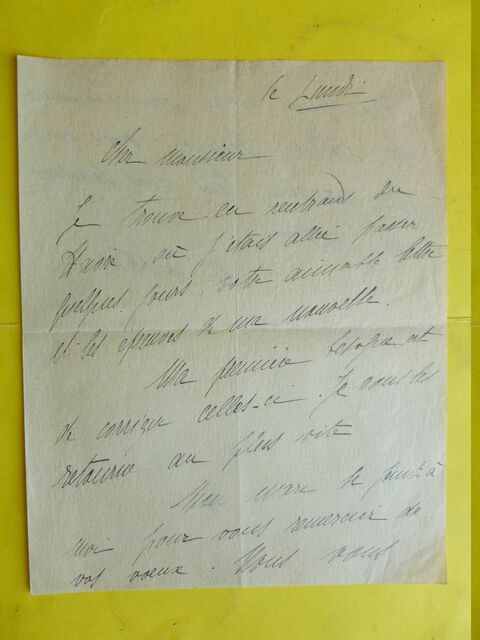 le Lundi
Cher Monsieur
Je trouve en rentrant du
Havre, où j'étais allée passer
quelques jours, votre aimable lettre
et les épreuves de ma nouvelle.
Ma première besogne est
de corriger celles-ci. Je vous les
retourne au plus vite
Mon mari se joint à
moi pour vous remercier de
vos voeux. Nous vous